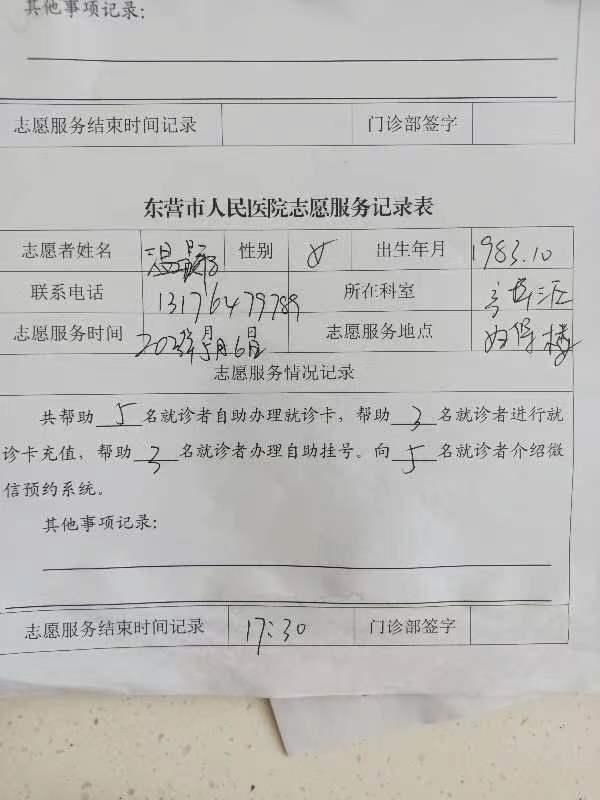 其他事项记录：
志愿服务结束时间记录 门诊部签字
东营市人民医院志愿服务记录表
志愿者姓名 性别 女 出生年月 1983.10
联系电话 13176479789 所在科室
志愿服务时间 年5月6日 志愿服务地点 妇保楼
志愿服务情况记录
共帮助5名就诊者自助办理就诊卡，帮助3名就诊者进行就
诊卡充值，帮助3名就诊者办理自助挂号。向5名就诊者介绍微
信预约系统。
其他事项记录：
志愿服务结束时间记录 17:30 门诊部签字